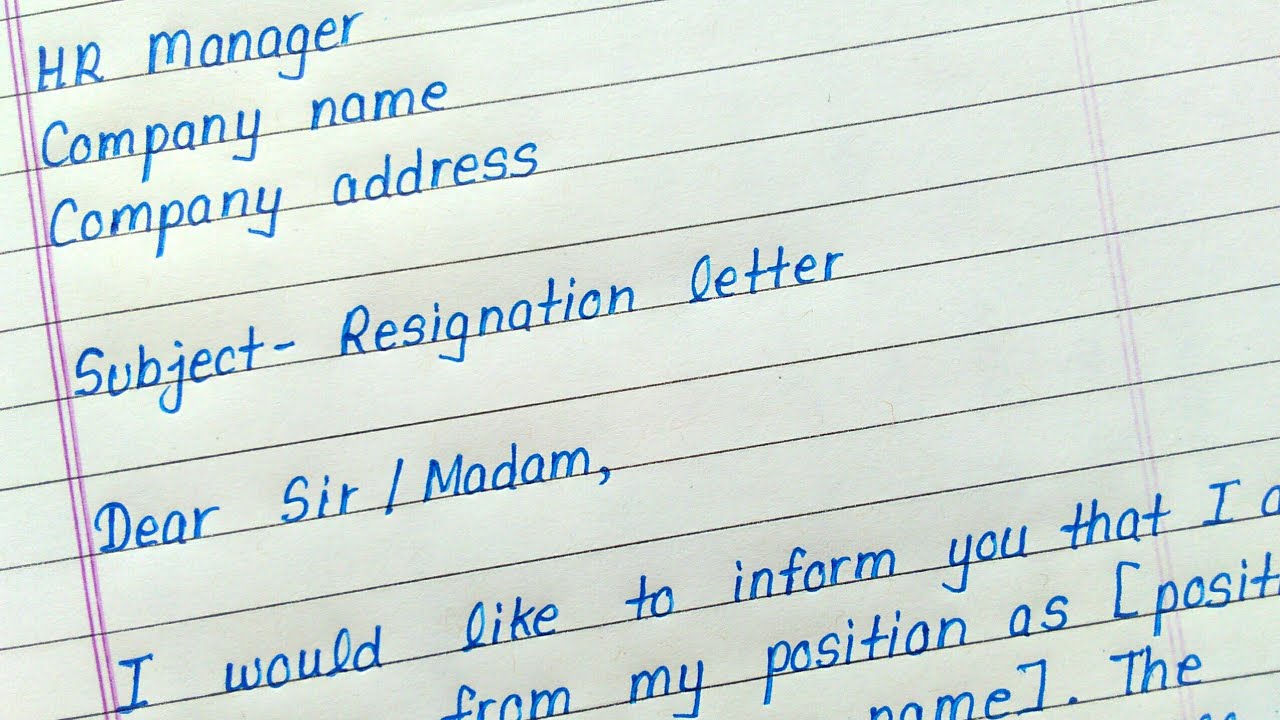 HR Manager
Company name
Company address
Subject- Resignation letter
Dear Sir / Madam,
I would like to inform you that I
from my position as [posit
name]. The